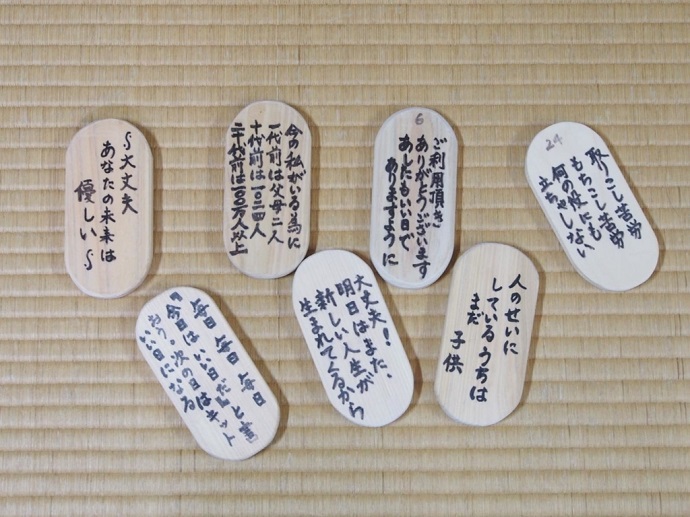 〜大丈夫
あなたの未来は
優しい〜
今の私がいる為に
一代前は父母二人
十代前は一〇二四人
二十代前は一〇〇万人以上
6
ご利用頂き
ありがとうございます
あしたもいい日で
ありますように
24
取りこし苦労
もちこし苦労
何の役にも
立ちゃしない
毎日毎日毎日
『今日はいい日だ』と言
おう。次の日はキット
いい日になる
大丈夫!
明日はまた、
新しい人生が
生まれてくるから
人のせいに
しているうちは
まだ 子供